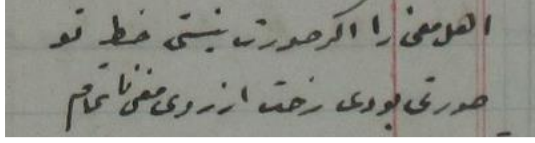 اهل معنی را اگر صورت نبستی خط تو
صورتی بودی رخت از روی معنی ناتمام